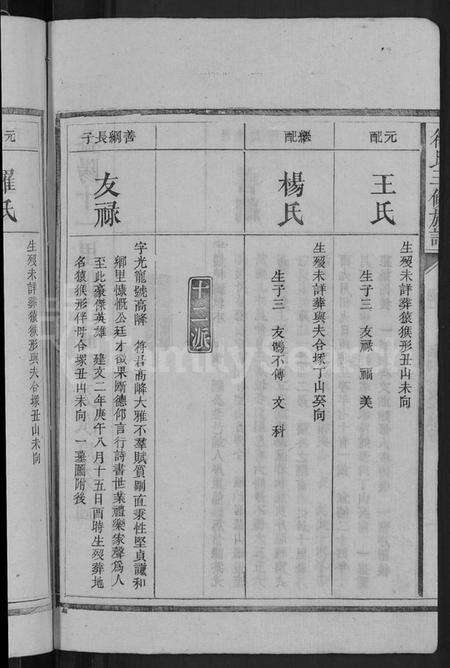 氏三修族譜
元配
王氏
生歿未詳葬猿猴形與夫合塚丑山未向
生子三　友祿　福　美
繼配
楊氏
生歿未詳葬與夫合塚丁山癸向
生子三　友鳴不傳　文　科
十三派
善綱長子
友祿
字光寵號高隆　符君高隆大雅不羣賦質剛直秉性堅貞謙和
鄉里慷慨公廷才欲果斷德仰言行詩書世業禮樂家聲爲人
至此豪傑英雄　建文二年庚午八月十五日酉時生歿葬地
名猿猴形伴母合塚丑山未向　一墓圖附後
元
羅氏
生歿未詳葬猿猴形與夫合塚丑山未向